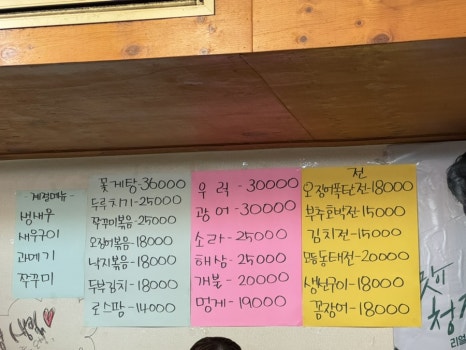 계절메뉴
뱀새우
새우구이
과메기
쭈꾸미
꽃게탕-36000
두루치기-25000
쭈꾸미볶음-25000
오징어볶음-18000
낙지볶음-18000
두부김치-18000
로스팜-14000
우럭-30000
광어-30000
소라-25000
해삼-25000
개불-20000
멍게-19000
전
오징어폭탄전-18000
부추호박전-15000
김치전-15000
모듬동태전-20000
생선구이-18000
꼼장어-18000